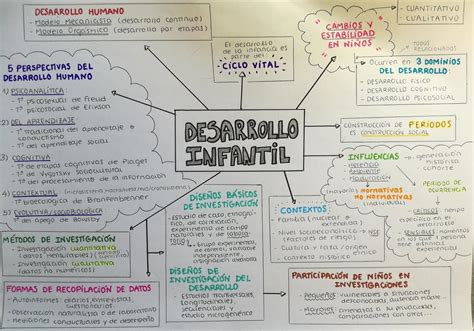 DESARROLLO HUMANO
- Modelo Mecanicista (desarrollo continuo)
- Modelo Orgásmico (desarrollo por etapas)
El desarrollo
de la infancia es
parte del
CICLO VITAL
CAMBIOS Y
ESTABILIDAD
EN NIÑOS
- CUANTITATIVO
- CUALITATIVO
TODOS
RELACIONADOS
Ocurren en 3 DOMINIOS
DEL DESARROLLO:
- DESARROLLO FÍSICO
- DESARROLLO COGNITIVO
- DESARROLLO PSICOSOCIAL
5 PERSPECTIVAS DEL
DESARROLLO HUMANO
1) PSICOANALÍTICA
- Tª psicosexual de Freud
- Tª psicosocial de Erikson
2) DEL APRENDIZAJE
- Tª tradicional del aprendizaje o
conductismo
- Tª del aprendizaje social
3) COGNITIVA
- Tª de etapas cognitivas de Piaget
- Tª de Vygotski sociocultural
- Tª del procesamiento de la información
4) CONTEXTUAL
- Tª bioecológica de Bronfenbenner
5) EVOLUTIVA/SOCIOBIOLÓGICA
- Tª del apego de Bowlby
DESARROLLO
INFANTIL
CONSTRUCCIÓN DE PERIODOS
ES CONSTRUCCIÓN SOCIAL
INFLUENCIAS
Herencia
Ambiente
Maduración
generación
histórica
cohorte
(mayoría) NORMATIVAS
NO NORMATIVAS
PERIODO DE
OCURRENCIA
CRÍTICOS: tiempo
específico en
desarrollo
SENSIBLES:
MÉTODOS DE INVESTIGACIÓN
- Investigación cuantitativa
(datos numéricos)
- Investigación cualitativa
(datos no numéricos)
DISEÑOS BÁSICOS
DE INVESTIGACIÓN
- Estudio de caso, etnográfico,
de correlación,
experimento de campo,
naturales y de laboratorio
Grupo experimental,
de control, variable
independiente y
dependiente
DISEÑOS DE
INVESTIGACIÓN DEL
DESARROLLO
- Estudios transversales,
longitudinales,
secuenciales y
estudio microgenético
CONTEXTOS:
- Familia (nuclear o
extendida)
- Nivel socioeconómico →
(factores de riesgo)
- Cultura y raza u origen
- Contexto histórico
FORMAS DE RECOPILACIÓN DE DATOS
- Autoinformes: diarios, entrevistas,
cuestionarios.
- Observación naturalista o de laboratorio
- Mediciones conductuales y de desempeño
PARTICIPACIÓN DE NIÑOS EN
INVESTIGACIONES
- Pequeños:
- Mayores: